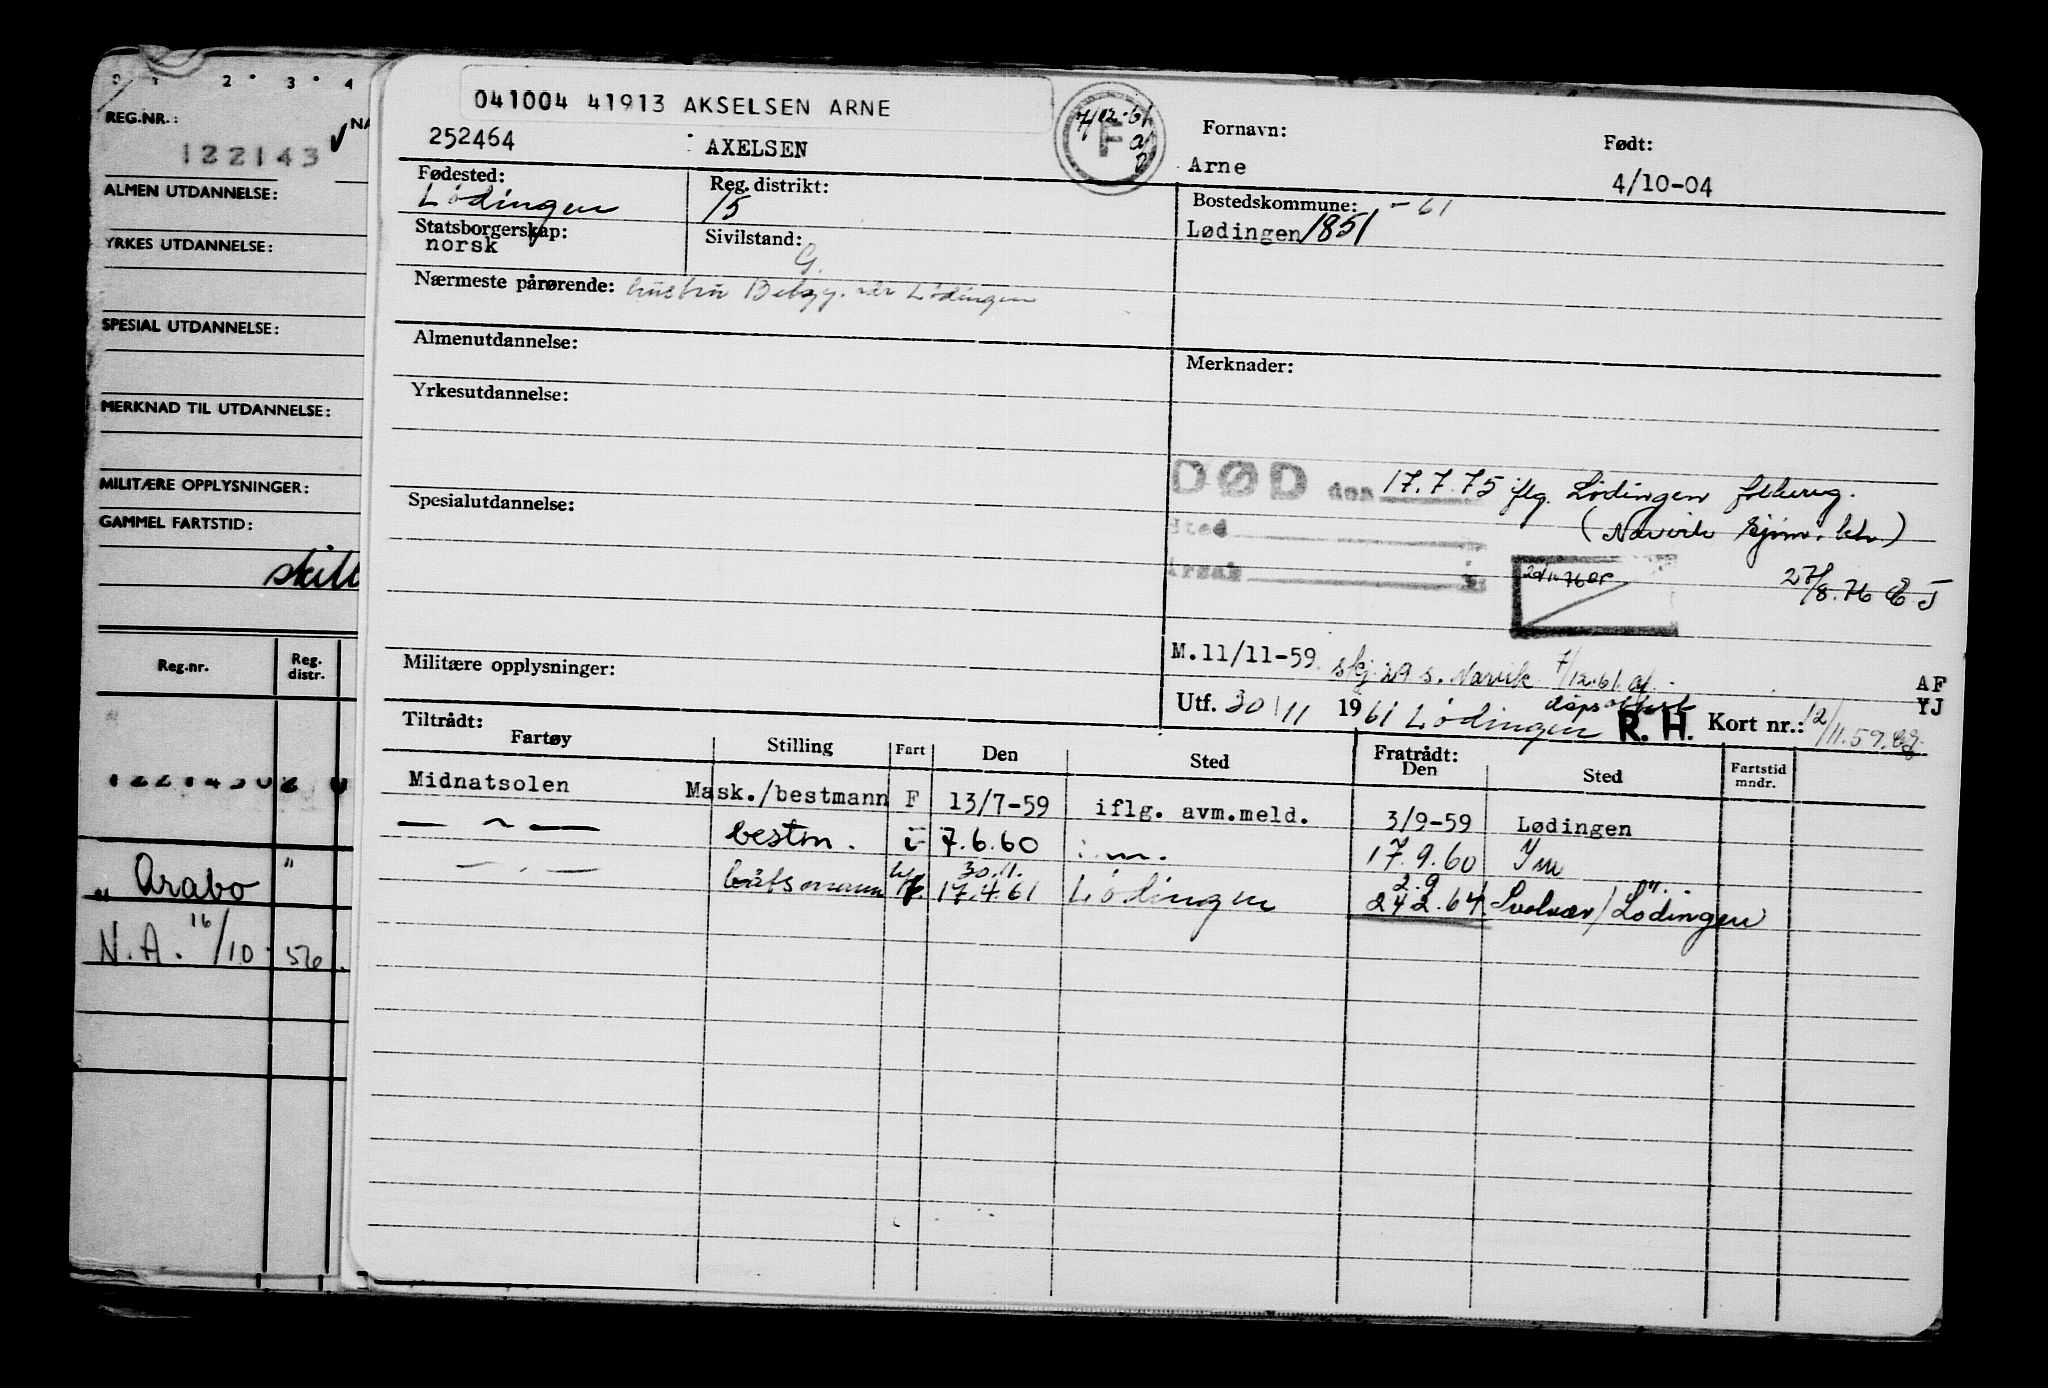 0 1 2 3 4
REG.NR.:
NA
122143
ALMEN UTDANNELSE:
YRKES UTDANNELSE:
SPESIAL UTDANNELSE:
MERKNAD TIL UTDANNELSE:
MILITÆRE OPPLYSNINGER:
GAMMEL FARTSTID:
Reg.nr. Reg. distr.
" Arabo "
N.A. 16/10 56
041004 41913 AKSELSEN ARNE
252464 AXELSEN
7/12-61
F
Fornavn:
Arne
Født:
4/10-04
Fødested:
Lødingen
Reg. distrikt:
15
Bostedskommune: -61
Lødingen 1851
Statsborgerskap:
norsk
Sivilstand:
G.
Nærmeste pårørende: hustru Lødingen
Almenutdannelse:
Merknader:
Yrkesutdannelse:
DØD den 17.7.75 iflg. Lødingen folkereg.
Spesialutdannelse:
Sted
(Narvik sjøm. ktr)
Årsak
27/8.76
M.11/11-59 skj. 29 s. Narvik 7/12.61.
Militære opplysninger:
AF
YJ
Utf. 30/11 1961 Lødingen R. H. Kort nr.: 12/11.59.
Tiltrådt: Fratrådt:
Fartøy Stilling Fart Den Sted Den Sted Fartstid mndr.
Midnatsolen Mask./bestmann F 13/7-59 iflg. avm.meld. 3/9-59 Lødingen
— " — bestm. i 7.6.60 17.9.60
— " — båtsmann 17.4.61 30.11. Lødingen 2.9 24.2.64 Svolvær/Lødingen